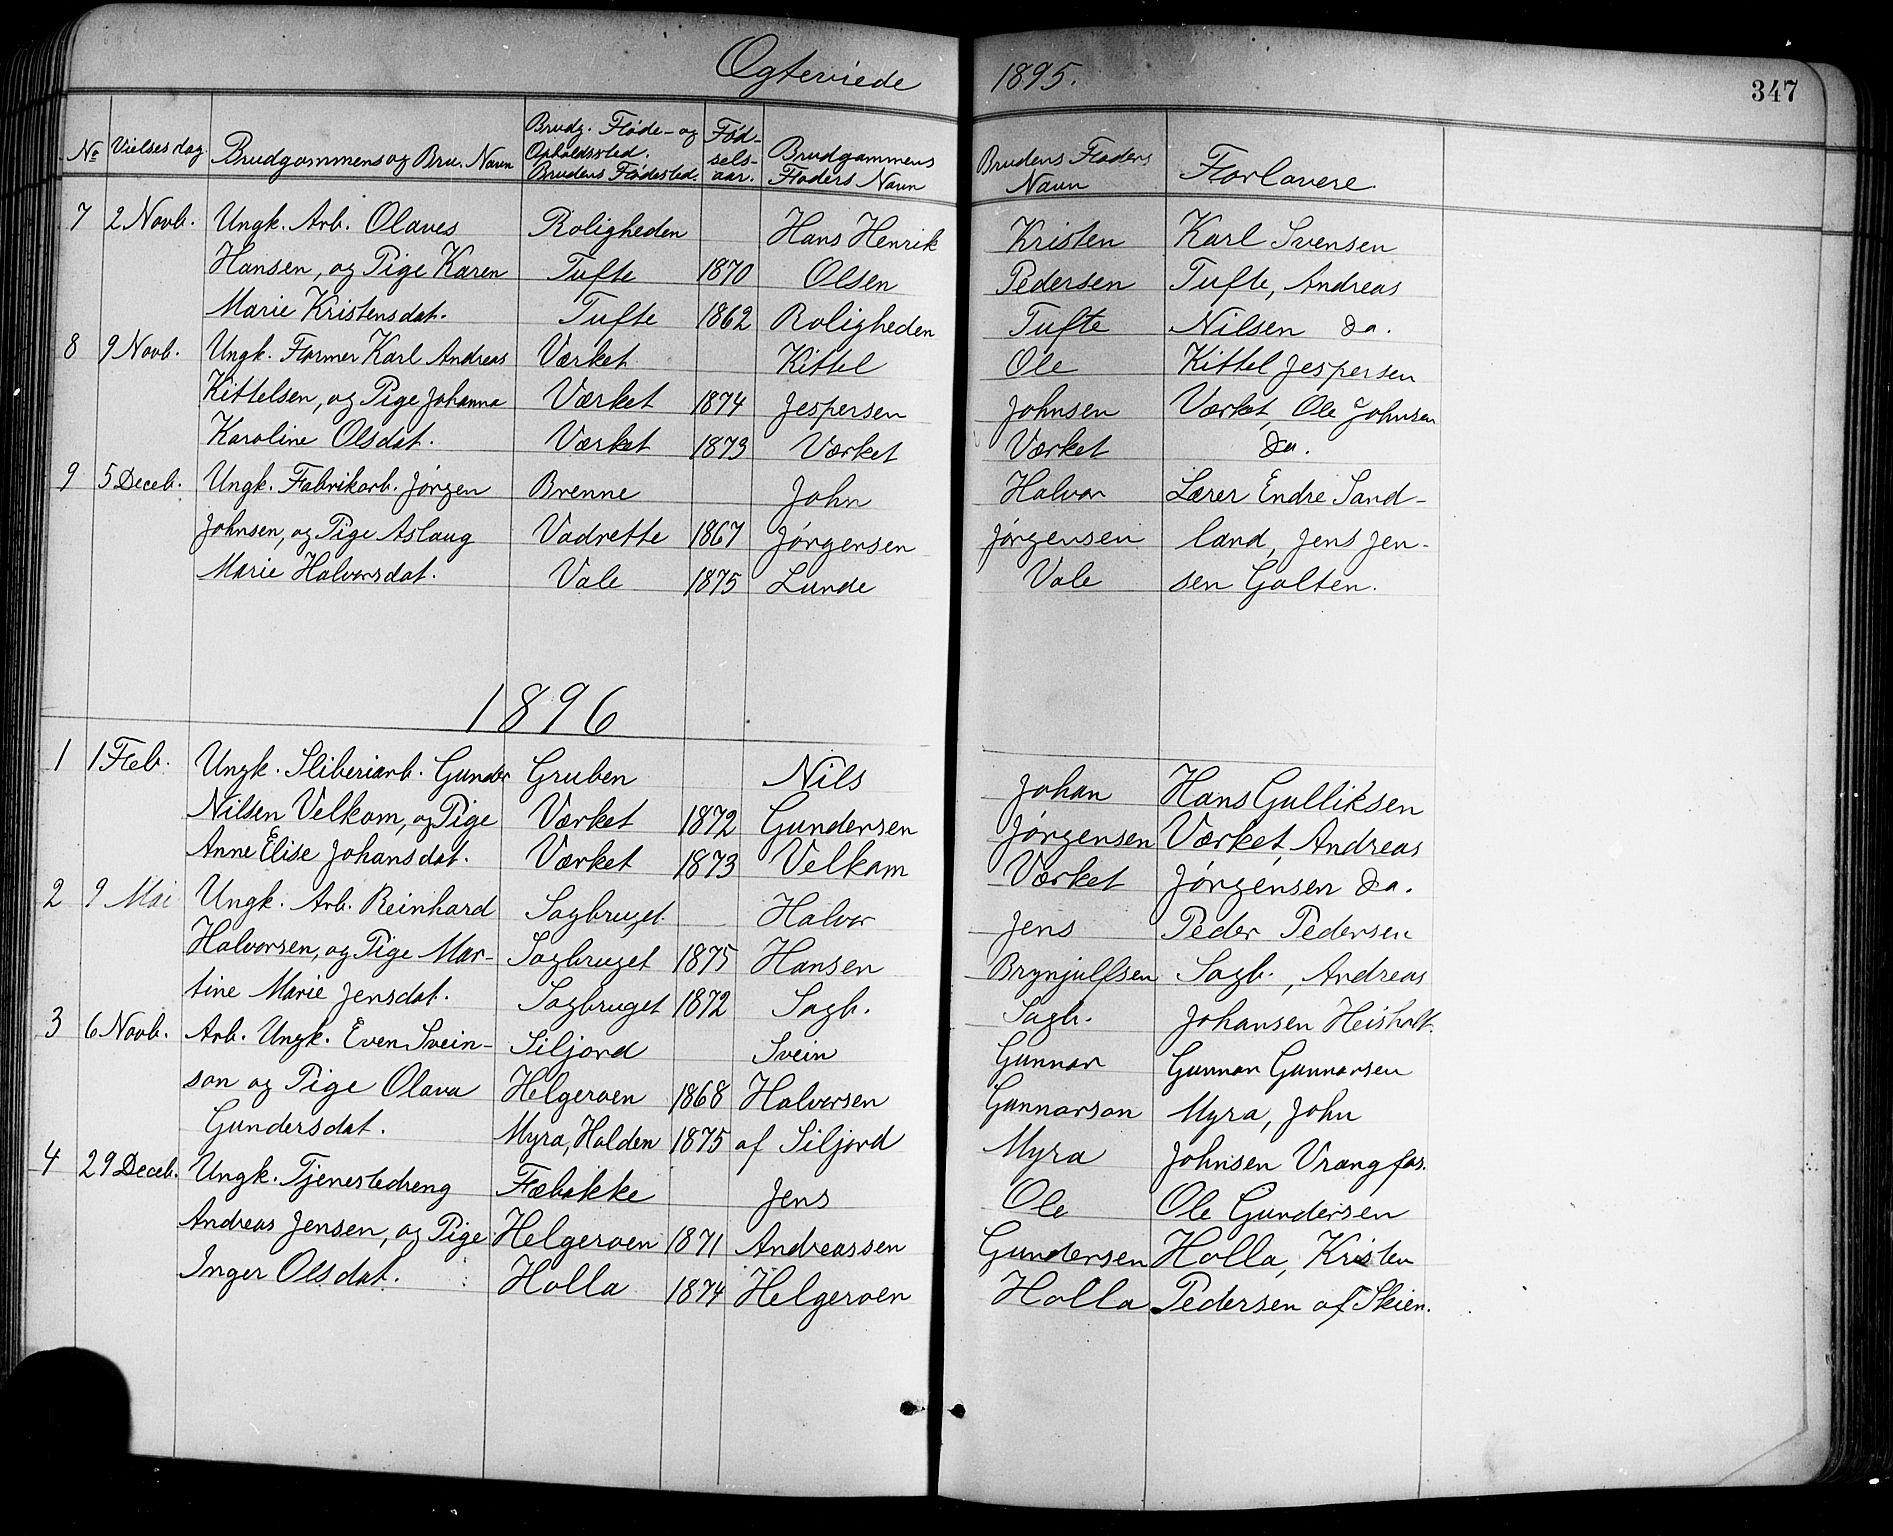 Ogteviede 1895. 347
No Vielsesdag. Brudgommens og Bru. Navn Brudg. Føde- og Opholdssted. Brudens Fødested. Fød-sels-aar. Brudgommens Faders Navn Brudens Faders Navn Forlovere.
7 2 Novb. Ungk. Arb. Olaves Roligheden Hans Henrik Kristen Karl Svensen
Hansen, og Pige Karen Tufte 1870 Olsen Pedersen Tufte, Andreas
Marie Kristensdat. Tufte 1862 Roligheden Tufte Nilsen do.
8 9 Novb. Ungk. Former Karl Andreas Værket Kittel Ole Kittel Jespersen
Kittelsen, og Pige Johanna Værket 1874 Jespersen Johnsen Værket, Ole Johnsen
Karoline Olsdat. Værket 1873 Værket Værket do.
9 5 Deceb. Ungk. Fabrikarb. Jørgen Brenne John Halvor Lærer Endre Sand-
Johnsen, og Pige Aslaug Vadrette 1867 Jørgensen Jørgensen land, Jens Jen-
Marie Halvorsdat. Vale 1875 Lunde Vale sen Galten.
1896
1 1 Feb. Ungk. Sliberiarb. Gunder Gruben Nils Johan Hans Gulliksen
Nilsen Velkom, og Pige Værket 1872 Gundersen Jørgensen Værket, Andreas
Anne Elise Johansdat. Værket 1873 Velkom Værket Jørgensen do.
2 9 Mai Ungk. Arb. Reinhard Sagbruget Halvor Jens Peder Pedersen
Halvorsen, og Pige Mar- Sagbruget 1875 Hansen Brynjulfsen Sagb., Andreas
tine Marie Jensdat. Sagbruget 1872 Sagb. Sagb. Johansen Heisholt.
3 6 Novb. Arb. Ungk. Even Svein- Siljord Svein Gunnar Gunnar Gunnarsen
son og Pige Olava Helgeroen 1868 Halvorsen Gunnarson Myra, John
Gundersdat. Myra, Holden 1875 af Siljord Myra Johnsen Vrangfos.
4 29 Deceb. Ungk. Tjenestedreng Fæbakke Jens Ole Ole Gundersen
Andreas Jensen, og Pige Helgeroen 1871 Andreassen Gundersen Holla, Kristen
Inger Olsdat. Holla 1874 Helgeroen Holla Pedersen af Skien.